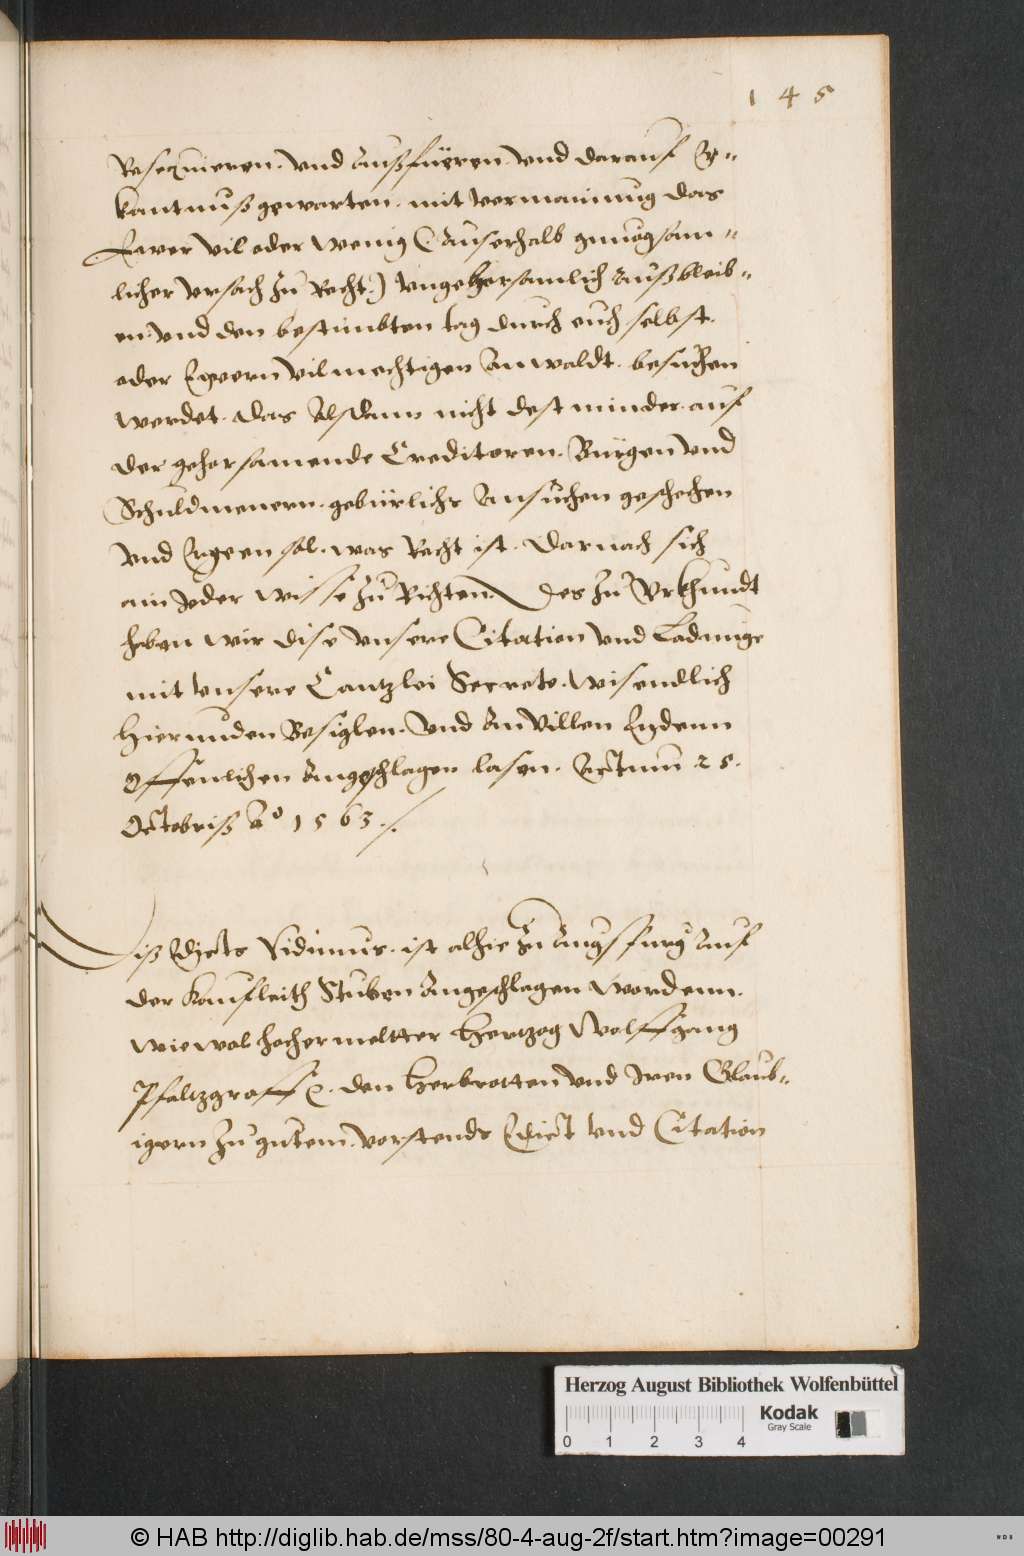 1 4 5
Resequieren. vnd Außfüeren. vnd darauf Er„
kantnuß gewarten. mit vermainung das
Ewer vil oder wenig (Auserhalb gnuogsam„
licher vrsach zu Recht) vngehorsamlich Außbleib„
en. vnd den bestimbten tag durch euch selbst.
oder Ewern vilmechtigen Anwaldt. besuchen
werdet. das Alsdann nicht dest minder. auf
der gehorsamende Creditoren. Bürgen vnd
Schuldmenern. gebürlichs Ansuchen geschehen
vnd Ergeen sol. was Recht ist. Darnach sich
ain Jeder wisse zu Richten. Des zu Vrkhundt
haben wir dise vnsere Citation vnd Ladunge
mit vnsere Cantzlei Secrete. wisendlich
hierunden Besiglen. vnd An Villen Endenn
Offenlichen Angeschlagen lasen. Actum 25.
Octobriß Ao 1563 ./.
Diß Edicts Vidimus. ist alhie Zu Augsspurg Auf
der Kaufleith Stuben Angeschlagen worden.
wie wol hochermeltter Hertzog Wolffgang
Pfaltzgraff &c. den Herbrotten vnd Jren Glaub„
igern zu gutem. vorstends Edict vnd Citation
Herzog August Bibliothek Wolfenbüttel
0 1 2 3 4
Kodak
Gray Scale
© HAB http://diglib.hab.de/mss/80-4-aug-2f/start.htm?image=00291